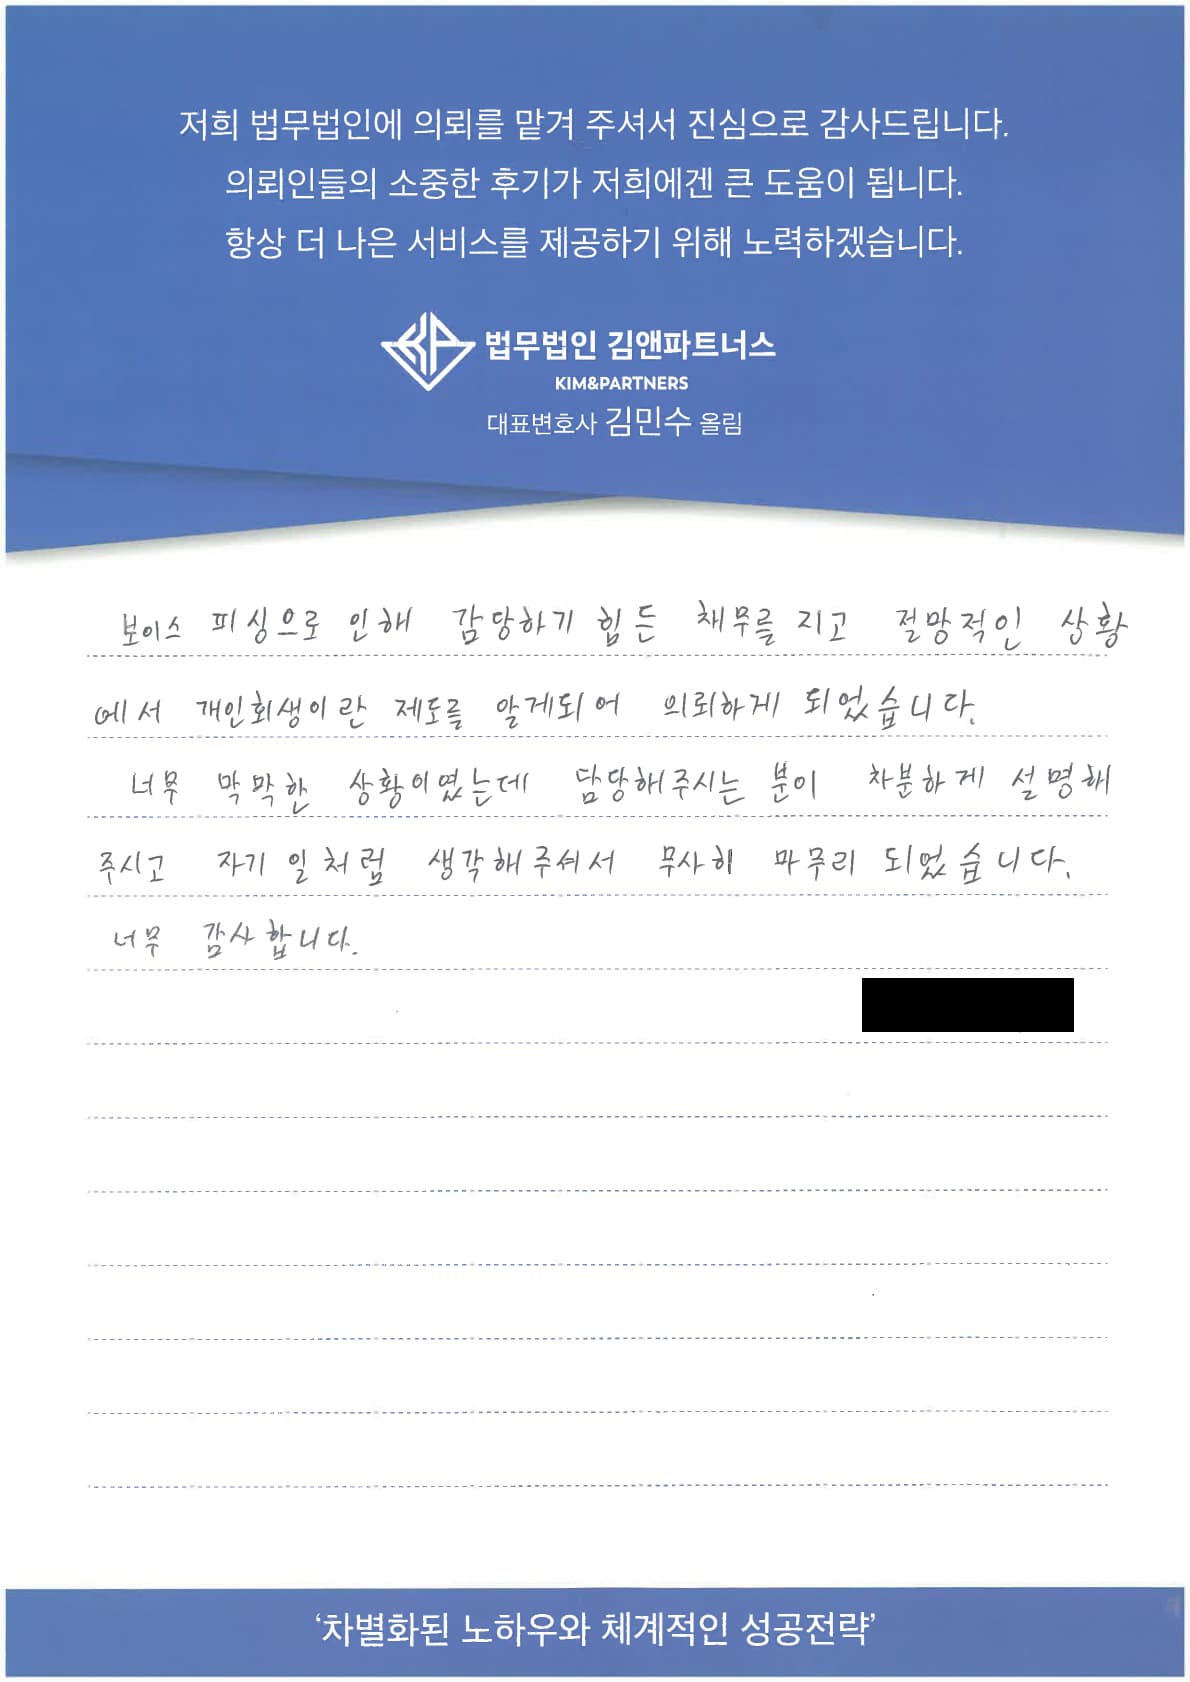 저희 법무법인에 의뢰를 맡겨 주셔서 진심으로 감사드립니다.
의뢰인들의 소중한 후기가 저희에겐 큰 도움이 됩니다.
항상 더 나은 서비스를 제공하기 위해 노력하겠습니다.
법무법인 김앤파트너스
KIM&PARTNERS
대표변호사 김민수 올림
보이스 피싱으로 인해 감당하기 힘든 채무를 지고 절망적인 상황
에서 개인회생이란 제도를 알게되어 의뢰하게 되었습니다.
너무 막막한 상황이였는데 담당해주시는 분이 차분하게 설명해
주시고 자기 일처럼 생각해주셔서 무사히 마무리 되었습니다.
너무 감사합니다.
'차별화된 노하우와 체계적인 성공전략'